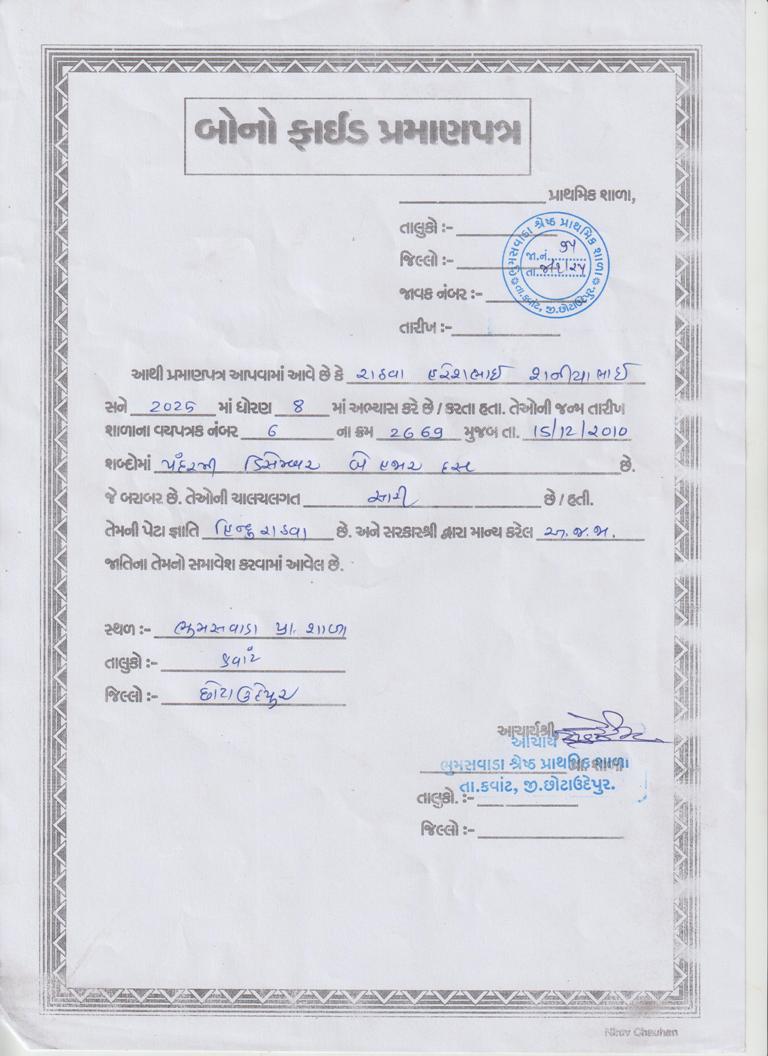 બોનો ફાઈડ પ્રમાણપત્ર
પ્રાથમિક શાળા,
તાલુકો :-
જિલ્લો :-
જાવક નંબર :-
તારીખ :-
ભુમસવાડા શ્રેષ્ઠ પ્રાથમિક શાળા
જા.નં.
તા.
તા.કવાંટ, જી.છોટાઉદેપુર
આથી પ્રમાણપત્ર આપવામાં આવે છે કે રાઠવા હરેશભાઈ શનીયાભાઈ
સને 2025 માં ધોરણ 8 માં અભ્યાસ કરે છે / કરતા હતા. તેઓની જન્મ તારીખ
શાળાના વયપત્રક નંબર 6 ના ક્રમ 2669 મુજબ તા. 15/12/2010
શબ્દોમાં પંદરમી ડિસેમ્બર બે હજાર દસ છે.
જે બરાબર છે. તેઓની ચાલચલગત સારી છે / હતી.
તેમની પેટા જ્ઞાતિ હિન્દુ રાઠવા છે. અને સરકારશ્રી દ્વારા માન્ય કરેલ અ.જ.જા.
જાતિના તેમનો સમાવેશ કરવામાં આવેલ છે.
સ્થળ :- ભુમસવાડા પ્રા. શાળા
તાલુકો :- કવાંટ
જિલ્લો :- છોટાઉદેપુર
આચાર્યશ્રી,
આચાર્ય
ભુમસવાડા શ્રેષ્ઠ પ્રાથમિક શાળા
તા.કવાંટ, જી.છોટાઉદેપુર.
તાલુકો. :-
જિલ્લો :-
Nirav Chauhan